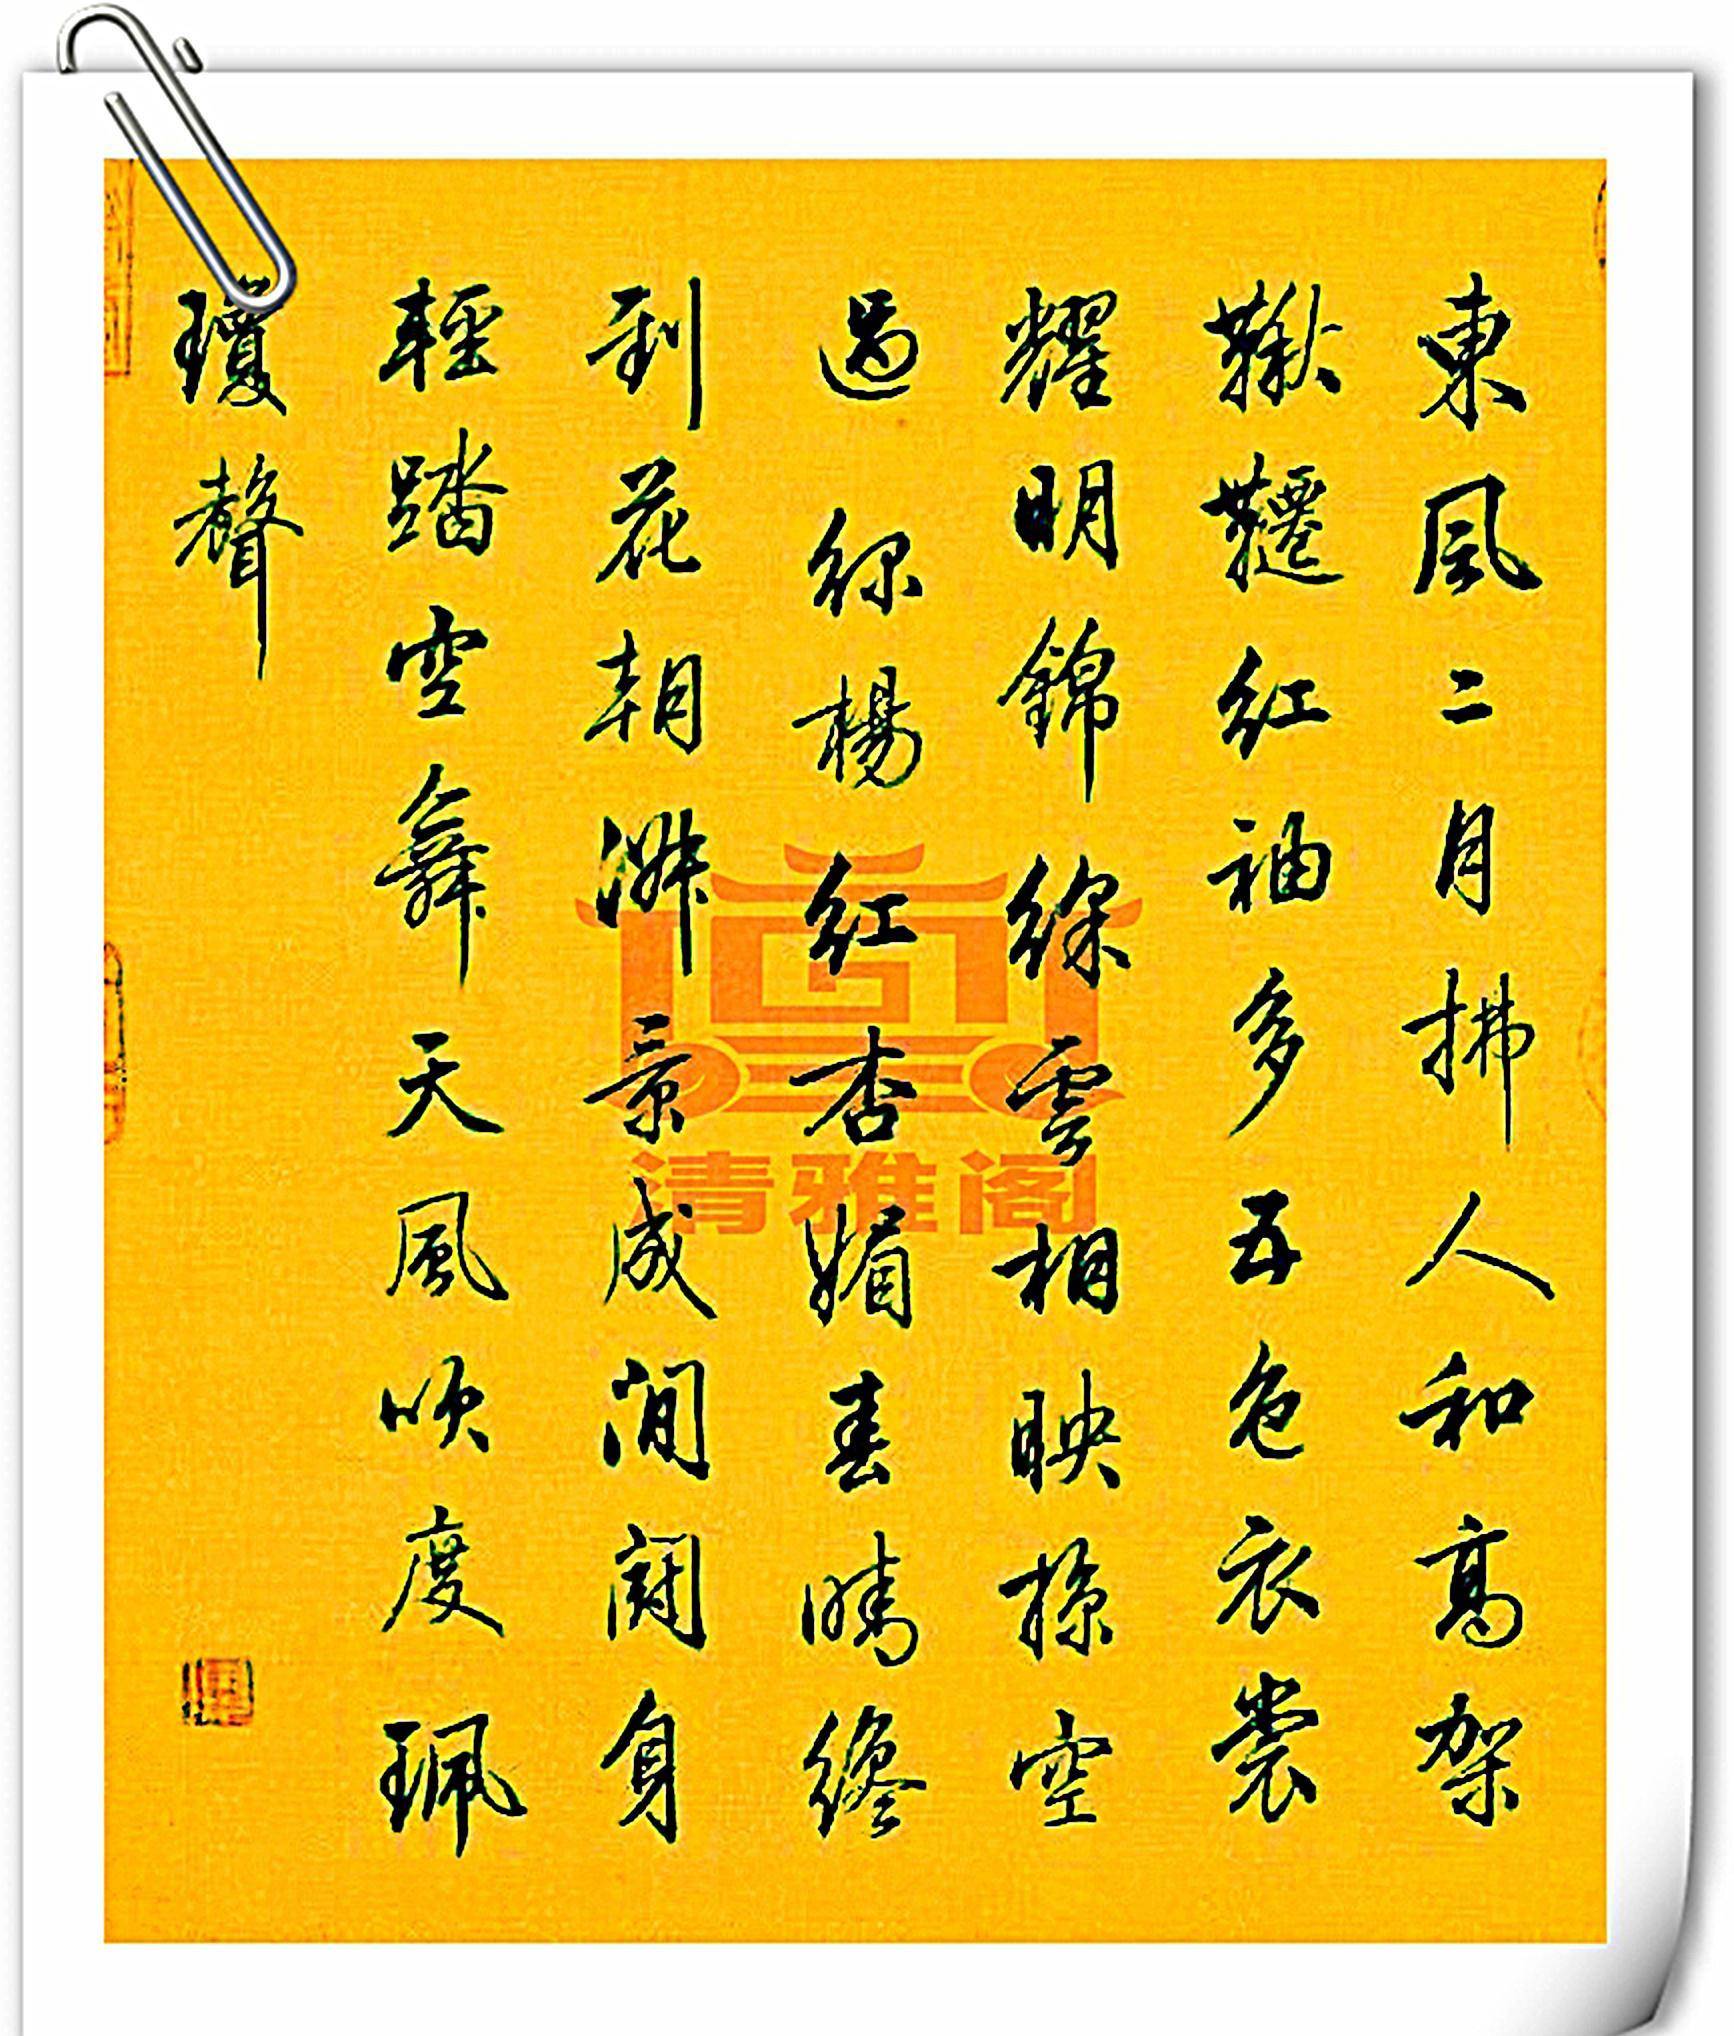 東風二月拂人和高架
鞦韆紅袖多五色衣裳
耀明錦綵雲相映掠空
過綠楊紅杏媚春晴纔
到花朝淑景成閒闘身
輕踏空舞天風吹度珮
瓊聲
清雅阁